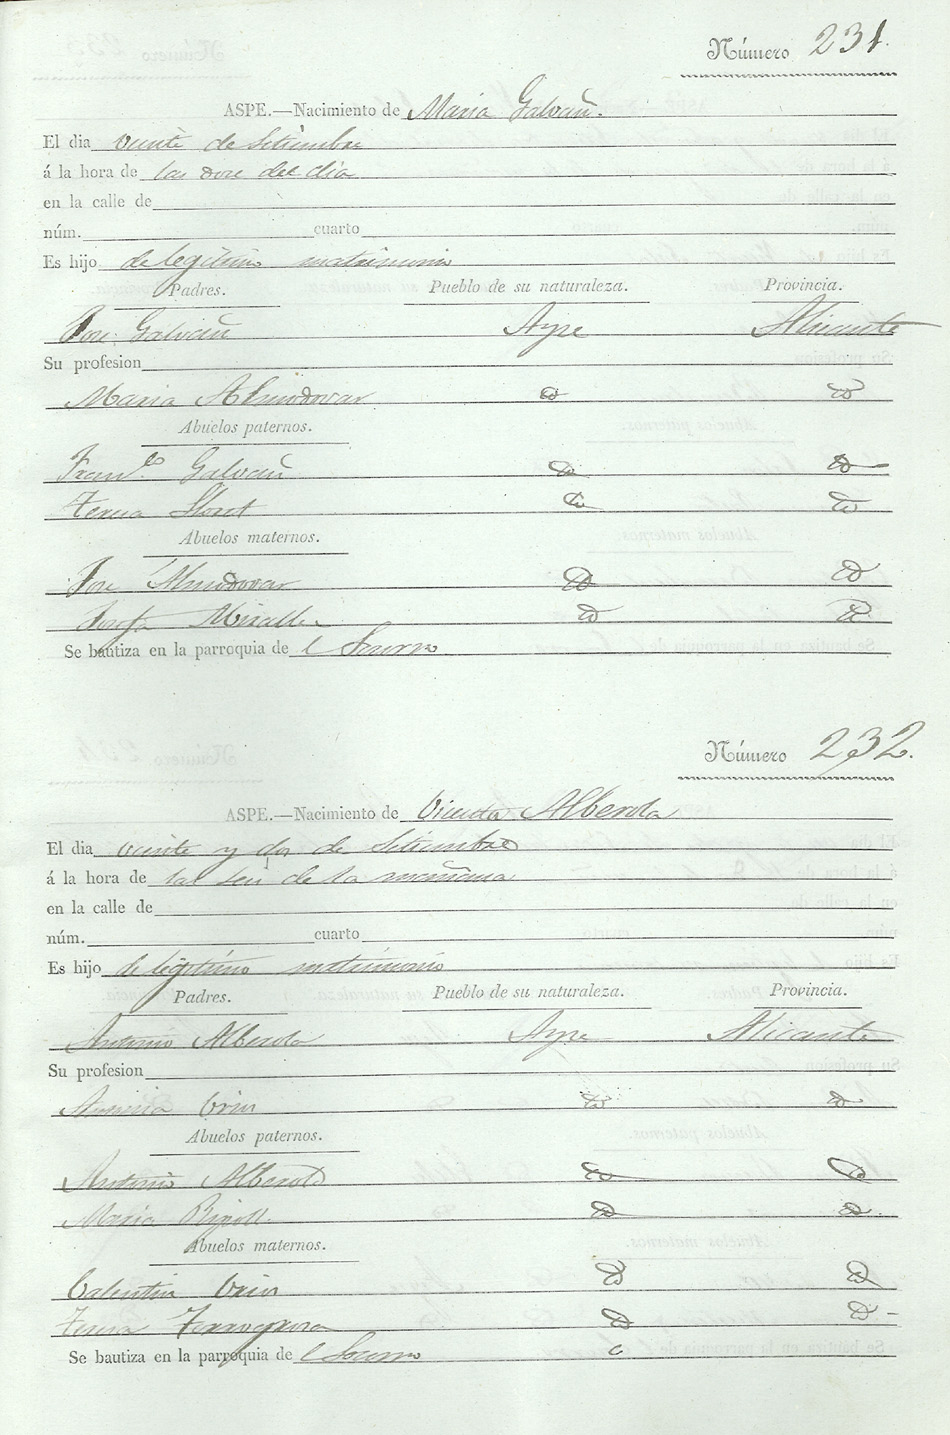 Número 231.
ASPE.—Nacimiento de Maria Galvañ.
El dia veinte de Setiembre
á la hora de las doce del dia
en la calle de
núm. cuarto
Es hijo de legitimo matrimonio
Padres. Pueblo de su naturaleza. Provincia.
Jose Galvañ Aspe Alicante
Su profesion
Maria Almodovar id id
Abuelos paternos.
Fran.co Galvañ id id
Teresa Lloret id id
Abuelos maternos.
Jose Almodovar id id
Josefa Miralles id id
Se bautiza en la parroquia de l Socorro
Número 232.
ASPE.—Nacimiento de Vicenta Alberola
El dia veinte y dos de Setiembre
á la hora de las seis de la mañana
en la calle de
núm. cuarto
Es hijo de legitimo matrimonio
Padres. Pueblo de su naturaleza. Provincia.
Antonio Alberola Aspe Alicante
Su profesion
id id
Abuelos paternos.
Antonio Alberola id id
Maria Ripoll id id
Abuelos maternos.
Valentin id id
Teresa id id
Se bautiza en la parroquia de l Socorro